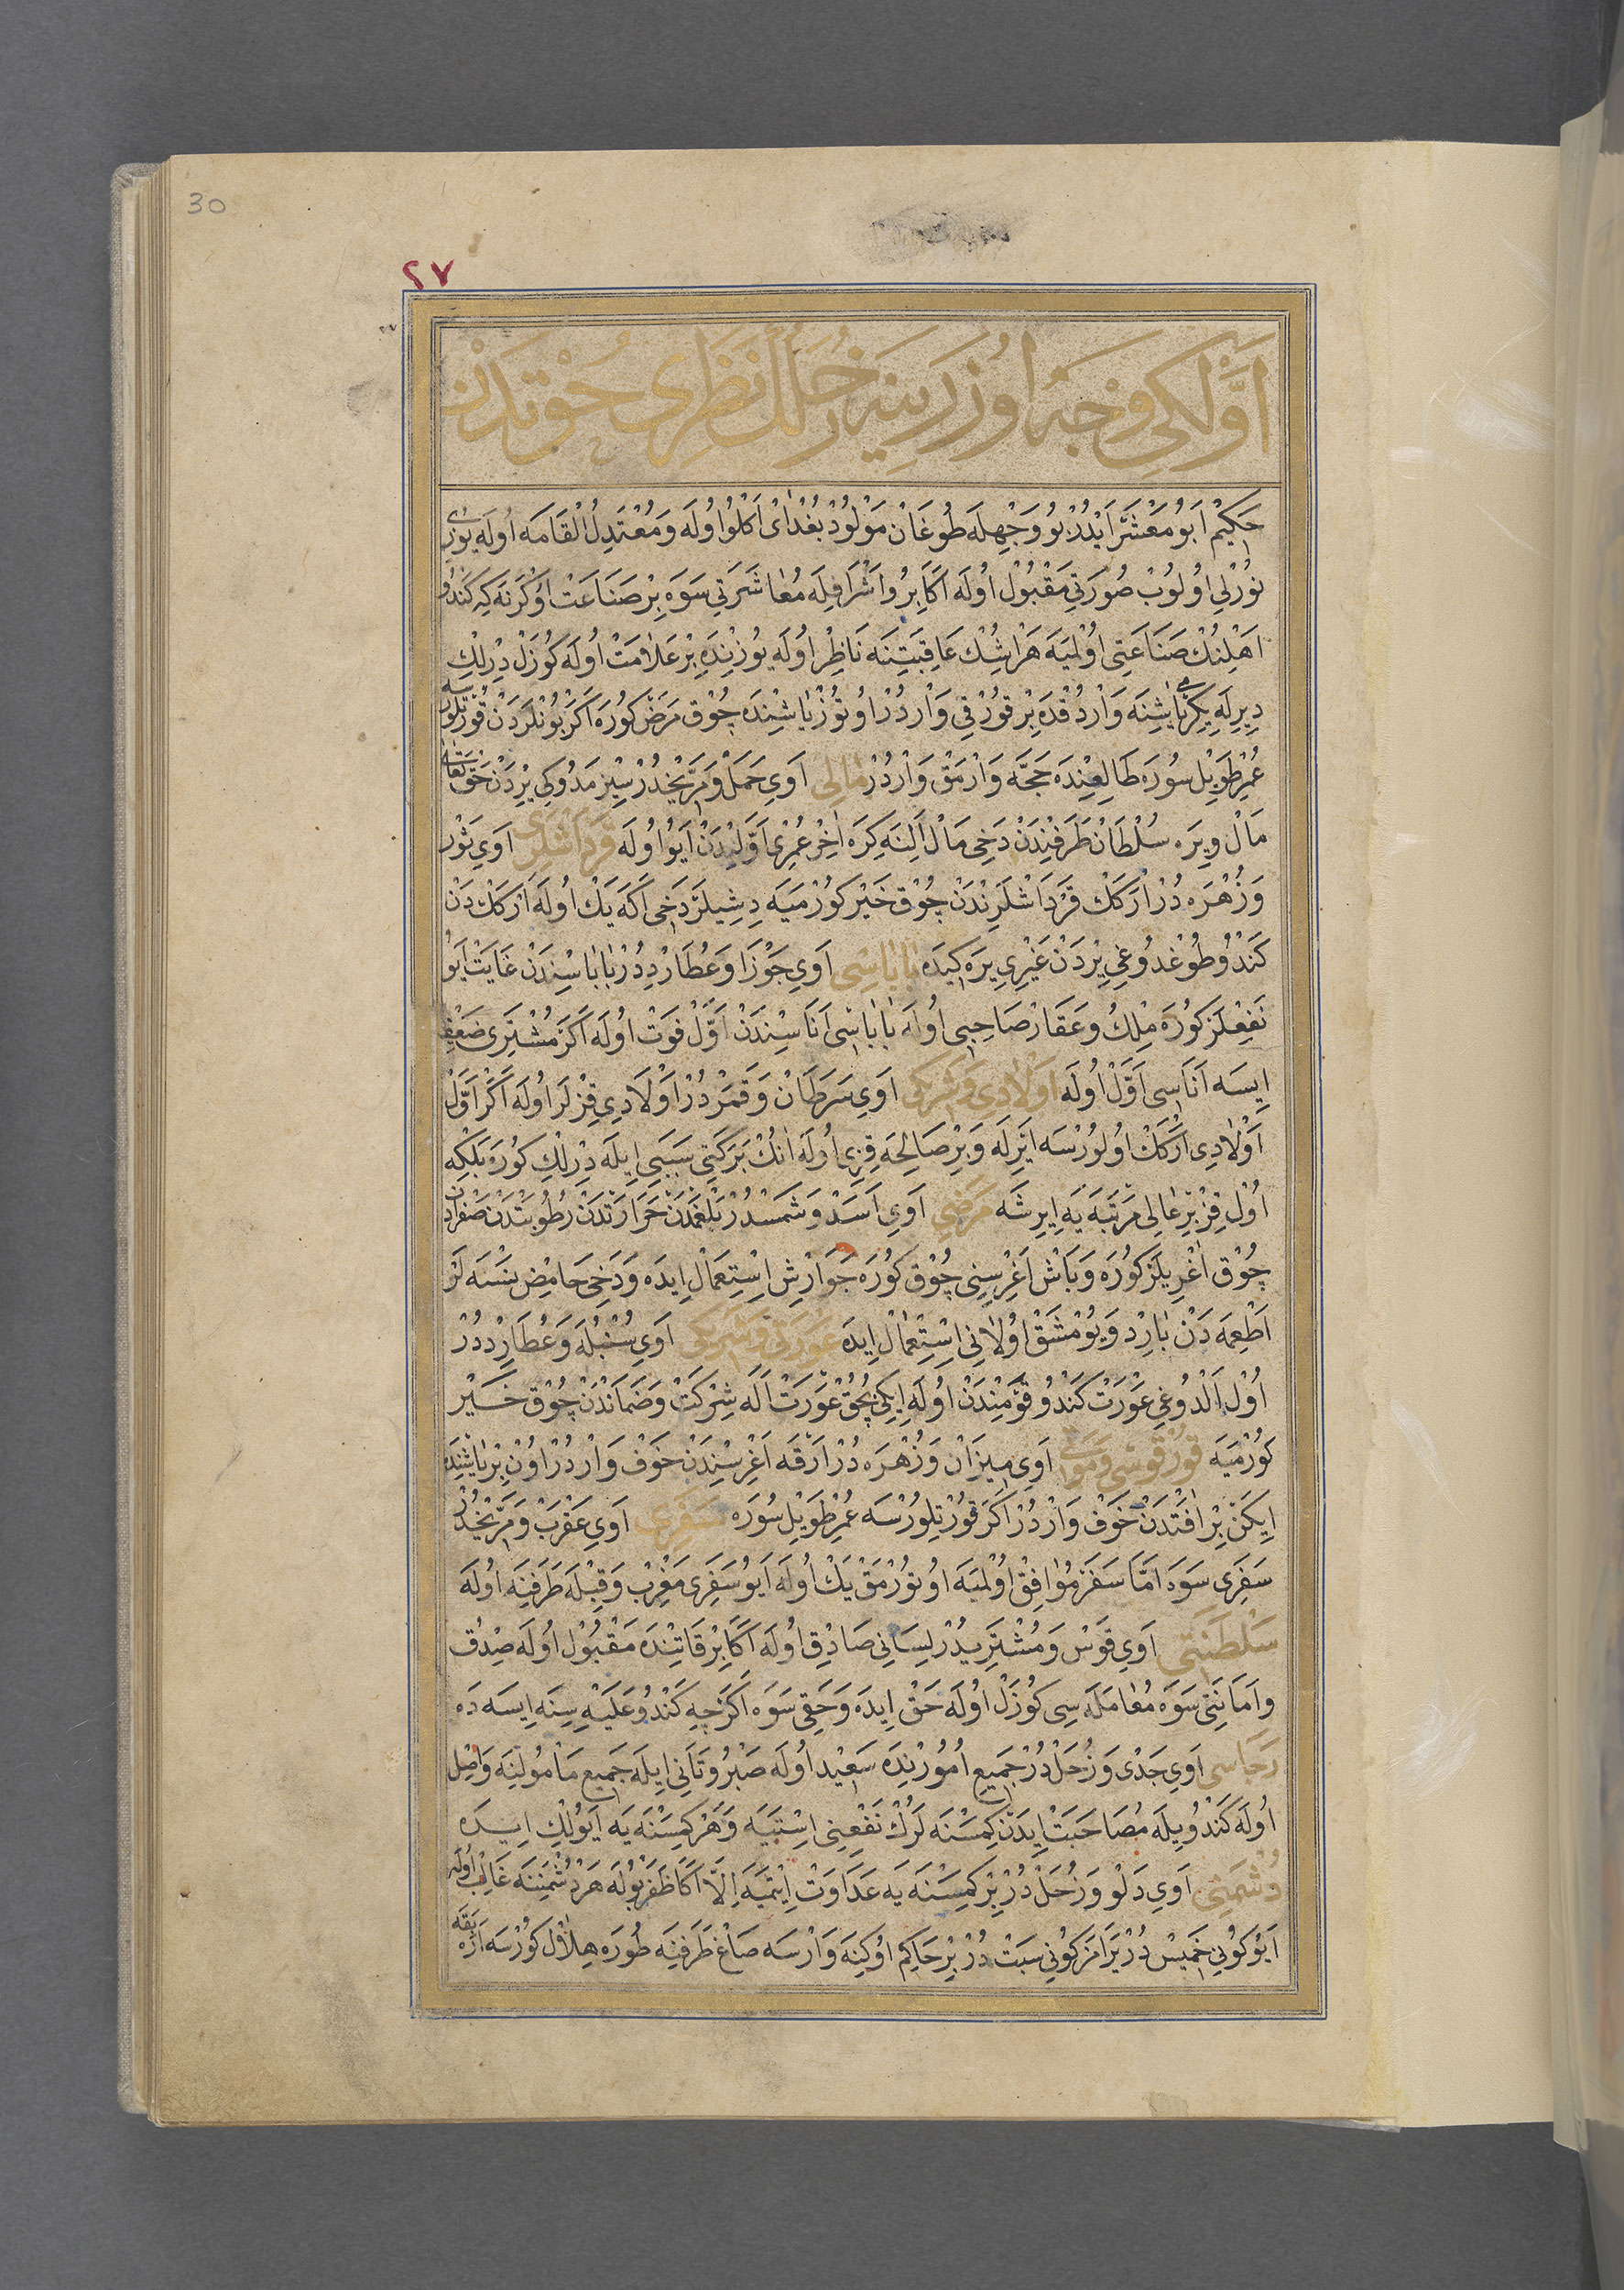 30
٢٧
اَوَّلكِى وَجْهْ اُوزَرِينَه زُحَلُكْ نَظَرِى حُوتْدَنْ
حَكِيمْ اَبُو مَعْشَرْ اَيْدُرْ بُو وَجْهِلَه طُوغَانْ مَوْلُودْ بُغْدَاىْ اَكْلُو اُولَه وَ مُعْتَدِلُ الْقَامَه اُولَه يُوزِى
نُورْلِى اُولُوبْ صُورَتِى مَقْبُولْ اُولَه اَكَابِرْ وُ اَشْرَافِلَه مُعَاشَرَتِى سَوَه بِرْ صَنَاعَتْ اُوكْرَنَه كِه كَنْدُو
اَهْلِنُكْ صَنَاعَتِى اُولْمَيَه هَرْ اِشُكْ عَاقِبَتِنَه نَاظِرْ اُولَه يُوزِنْدَه بِرْ عَلَامَتْ اُولَه كُوزَلْ دِرْلِكْ
دِيرِلَه يِكِرْمِى يَاشِنَه وَارْدُقْدَه بِرْ قُورْقِى وَارْدُرْ اُوتُوزْ يَاشِنْدَه چُوقْ مَرَضْ كُورَه اَكَرْ بُونْلَرْدَنْ قُورْتِلُورْسَه
عُمْرِ طَوِيلْ سُورَه طَالِعِنْدَه حَجَّه وَارْمَقْ وَارْدُرْ مَالِى اَوِى حَمَلْ وَ مَرِّيخْدُرْ سِيزْمَدُوكِى يِرْدَنْ حَقْ تَعَالَى
مَالْ وِيرَه سُلْطَانْ طَرَفِنْدَنْ دَخِى مَالْ اَلِنَه كِرَه اٰخِرْ عُمْرِى اَوَّلِنْدَنْ اَيُو اُولَه قَرَدَاشْلَرِى اَوِى ثَوْرْ
وَ زُهْرَه دُرْ اَرْكَكْ قَرَدَاشْلَرِنْدَنْ چُوقْ خَيْرْ كُورْمَيَه دِشِيلَرْ دَخِى اَكَه يَكْ اُولَه اَرْكَكْدَنْ
كَنْدُو طُوغْدُوغِى يِرْدَنْ غَيْرِى يِرَه كِيدَه بَابَاسِى اَوِى جَوْزَا وَ عُطَارِدْدُرْ بَابَاسِنْدَنْ غَايَتْ اَيُو
نَفْعِلَرْ كُورَه مِلْكُ و عَقَارْ صَاحِبِى اُولَه بَابَاسِى اَنَاسِنْدَنْ اَوَّلْ فَوْتْ اُولَه اَكَرْ مُشْتَرِى ضَعِيفْ
اِيسَه اَنَاسِى اَوَّلْ اُولَه اَوْلَادِى وَ شَرِيكِى اَوِى سَرَطَانْ وَ قَمَرْدُرْ اَوْلَادِى قِزْلَرْ اُولَه اَكَرْ اَوَّلْ
اَوْلَادِى اَرْكَكْ اُولُورْسَه اِيرِلَه وَ بِرْ صَالِحَه قِزِى اُولَه اَنُكْ بَرَكَتِى سَبَبِى اِيلَه دِرْلِكْ كُورَه بَلْكِه
اُولْ قِزْ بِرْ عَالِى مَرْتَبَه يَه اِيرِشَه مَرَضِى اَوِى اَسَدْ وَ شَمْسْدُرْ بَلْغَمْدَنْ حَرَارَتْدَنْ رُطُوبَتْدَنْ صَفْرَادَنْ
چُوقْ اَغْرِيلَرْ كُورَه وَ بَاشْ اَغْرِسِنِى چُوقْ كُورَه جَوَارِشْ اِسْتِعْمَالْ اِيدَه وَ دَخِى حَامِضْ نَسْنَه لَرْ
اَطْعِمَه دَنْ بَارِدْ وَ يُومْشَقْ اُولَانِى اِسْتِعْمَالْ اِيدَه عَوْرَتِى وَ شَرِيكِى اَوِى سُنْبُلَه وَ عُطَارِدْدُرْ
اُولْ اَلْدُوغِى عَوْرَتْ كَنْدُو قَوْمِنْدَنْ اُولَه اِيكِى بُچُقْ عَوْرَتْ اَلَه شِرْكَتْ وَ ضَمَانْدَنْ چُوقْ خَيْرْ
كُورْمَيَه قُورْقُوسِى وَ مَوْتِى اَوِى مِيزَانْ وَ زُهْرَه دُرْ اَرْقَه اَغْرِسِنْدَنْ خَوْفْ وَارْدُرْ اُونْ بِرْ يَاشِنْدَه
اِيكَنْ بِرْ اٰفَتْدَنْ خَوْفْ وَارْدُرْ اَكَرْ قُورْتِلُورْسَه عُمْرِ طَوِيلْ سُورَه سَفَرِى اَوِى عَقْرَبْ وَ مَرِّيخْدُرْ
سَفَرِى سَوَه اَمَّا سَفَرْ مُوَافِقْ اُولْمَيَه اُوتُورْمَقْ يَكْ اُولَه اَيُو سَفَرِى مَغْرِبْ وَ قِبْلَه طَرَفِنَه اُولَه
سَلْطَنَتِى اَوِى قَوْسْ وَ مُشْتَرِيدُرْ لِسَانِى صَادِقْ اُولَه اَكَابِرْ قَاتِنْدَه مَقْبُولْ اُولَه صِدْقْ
و اَمَانَتِى سَوَه مُعَامَلَه سِى كُوزَلْ اُولَه حَقْ اِيدَه وَ حَقِى سَوَه اَكَرْچِه كَنْدُو عَلَيْهِسِنَه اِيسَه دَه
رَجَاسِى اَوِى جَدْى وَ زُحَلْدُرْ جَمِيعِ اُمُورِنْدَه سَعِيدْ اُولَه صَبْرُ وُ تَأَنِّى اِيلَه جَمِيعِ مَأْمُولِنَه وَاصِلْ
اُولَه كَنْدُويِلَه مُصَاحَبَتْ اِيدَنْ كِمْسَنَه لَرُكْ نَفْعِنِى اِسْتَيَه وَ هَرْ كِمْسَنَه يَه اَيُولِكْ اِيدَه
دُشْمَنِى اَوِى دَلْو وَ زُحَلْدُرْ بِرْ كِمْسَنَه يَه عَدَاوَتْ اِيتْمَيَه اِلَّا اَكَا ظَفَرْ بُولَه هَرْ دُشْمَنِنَه غَالِبْ اُولَه
اَيُو كُونِى خَمِيسْ دُرْ يَرَامَزْ كُونِى سَبْتْ دُرْ بِرْ حَاكِمْ اُوكِنَه وَارْسَه صَاغْ طَرَفِنَه طُورَه هِلَالْ كُورْسَه اَرَه بَقَه